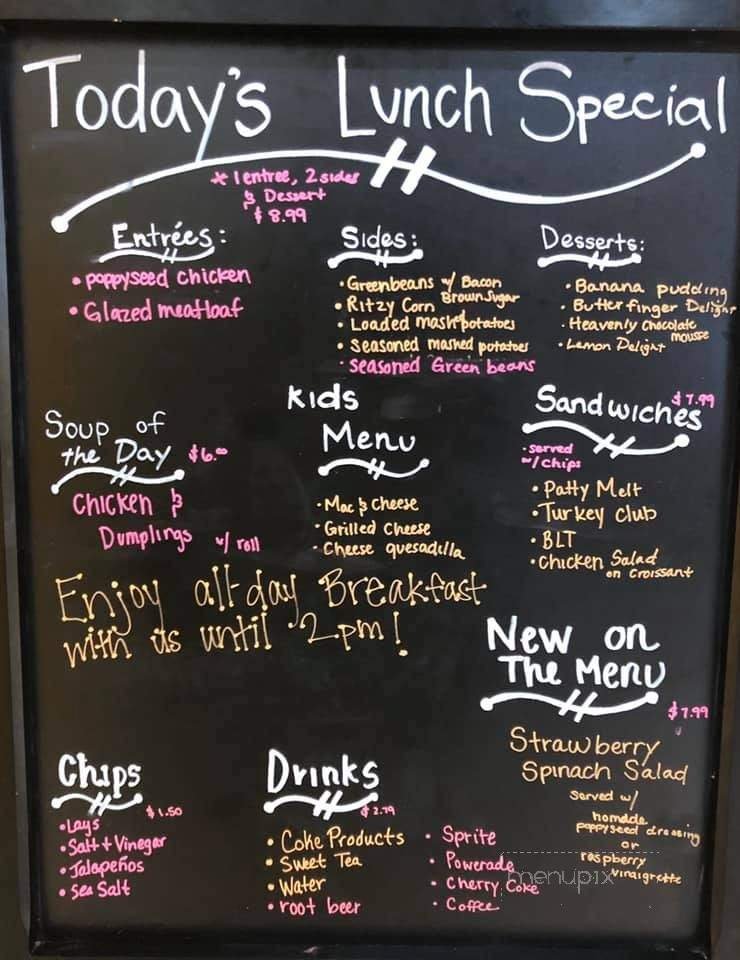 Today's Lunch Special
* 1 entree, 2 sides
& Dessert
$8.99
Entrées:
• poppyseed Chicken
• Glazed meatloaf
Sides:
• Greenbeans w/ Bacon
Brown Sugar
• Ritzy Corn
• Loaded mashed potatoes
• Seasoned mashed potatoes
• Seasoned Green beans
Desserts:
• Banana pudding
• Butterfinger Delight
• Heavenly Chocolate
mousse
• Lemon Delight
Soup of
the Day $6.00
Chicken &
Dumplings w/ roll
Kids
Menu
• Mac & Cheese
• Grilled Cheese
• Cheese quesadilla
Sandwiches $7.99
• served
w/ Chips
• Patty Melt
• Turkey Club
• BLT
• Chicken Salad
on Croissant
Enjoy all-day Breakfast
with us until 2pm!
New on
The Menu
$7.99
Strawberry
Spinach Salad
Served w/
homdde
poppyseed dressing
or
raspberry
vinaigrette
Chips
$1.50
• Lays
• Salt + Vinegar
• Jalapeños
• Sea Salt
Drinks
$2.79
• Coke Products
• Sweet Tea
• Water
• root beer
• Sprite
• Powerade
• Cherry Coke
• Coffee
menupix